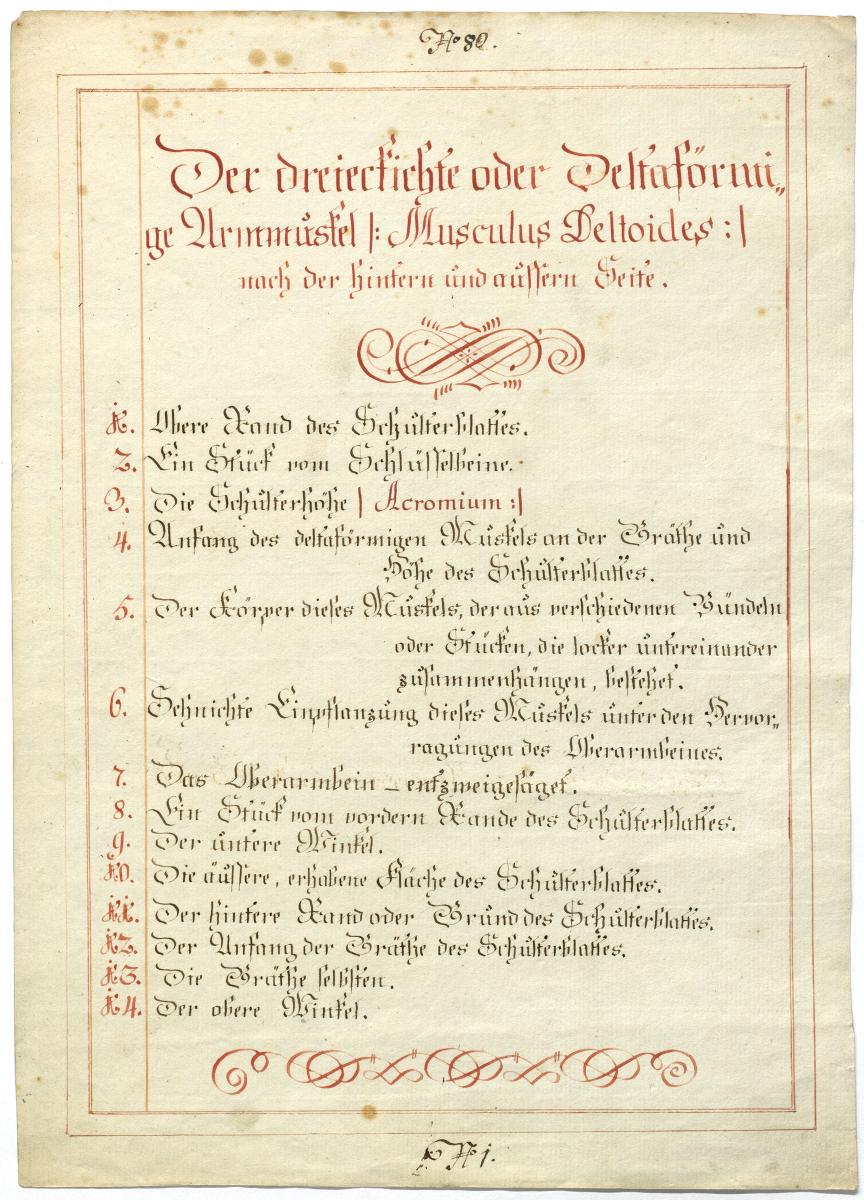 No 80.
Der dreieckichte oder Deltaförmi„
ge Armmuskel |: Musculus Deltoides :|
nach der hintern und aüssern Seite.
1. Obere Rand des Schulterblattes.
2. Ein Stück vom Schlüsselbeine.
3. Die Schulterhöhe | Acromium :|
4. Anfang des deltaförmigen Muskels an der Gräthe und
Höhe des Schulterblattes.
5. Der Körper dieses Muskels, der aus verschiedenen Bündeln
oder Stücken, die locker untereinander
zusammenhängen, bestehet.
6. Sehnichte Einpflanzung dieses Muskels unter den Hervor„
ragungen des Oberarmbeines.
7. Das Oberarmbein – entzweigesäget.
8. Ein Stück vom vordern Rande des Schulterblattes.
9. Der untere Winkel.
10. Die äussere, erhabene Fläche des Schulterblattes.
11. Der hintere Rand oder Grund des Schulterblattes.
12. Der Anfang der Gräthe des Schulterblattes.
13. Die Gräthe selbsten.
14. Der obere Winkel.
No 1.